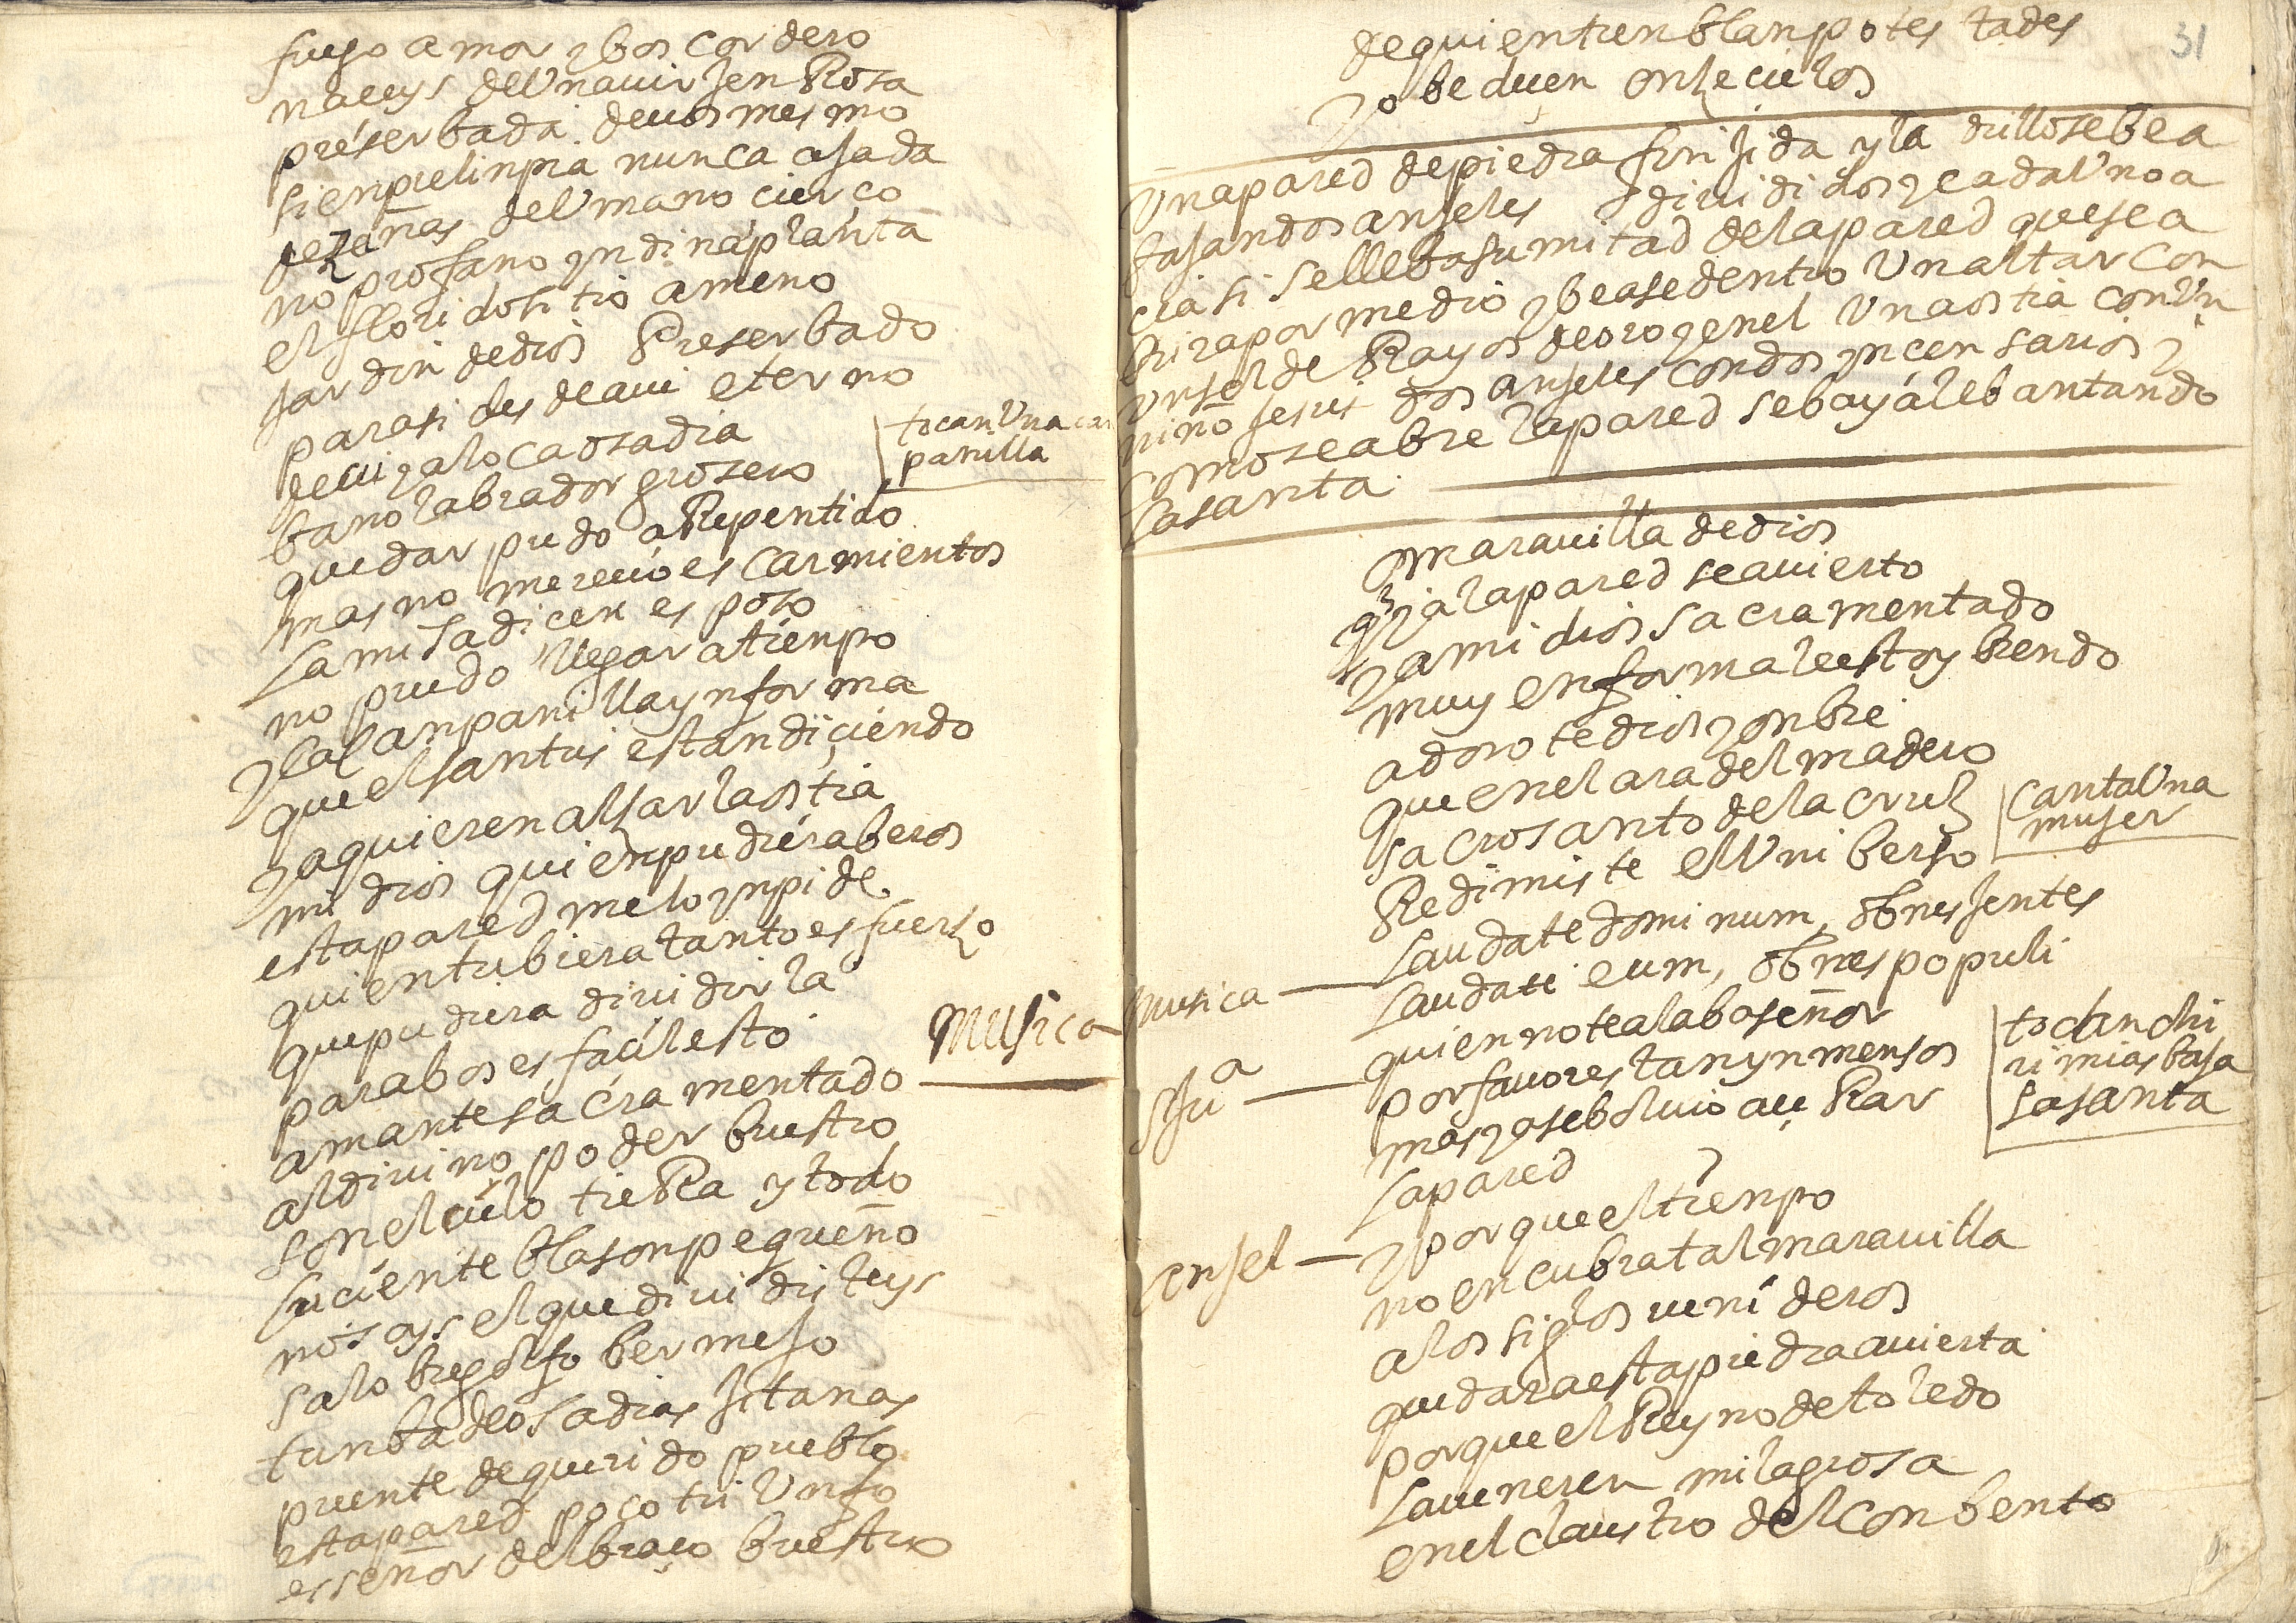 fuego amor y bos cordero
naceys de Una uirjen Rosa
preserbada de uos mesmo
sienpre linpia nunca ajada
de zañas del Umano cierço
no profano yndina planta
el florido sitio ameno
jardin de dios Preserbado
para si desde aui eterno
deuiza loca osadia
bano labrador grosero
quedar pudo aRepentido
mas no mereçio escarmientos
tocan Una can
panilla
la misa dicen esposo
no puedo llegar a tienpo
y la canpanilla ynforma
que el santus estan diçiendo
ya quieren alsar la ostia
mi dios quien pudiera beros
esta pared me lo ynpide
quien tubiera tanto esfuerzo
que pudiera diuidirla
para bos es facil esto
amante sacramentado
musica
al diuino poder buestro
son el cielo tieRa y todo
luciente blason pequeño
no soys el que diuidisteys
salobre golfo bermejo
tunba de osadias jitanas
puente de querido pueblo
esta pared poco triUnfo
es señor del braço buestro
31
de quien tienblan potestades
y obedeçen onze cielos
Una pared de piedra finjida y ladrillo se bea
bajan dos anjeles diuididos y cada Uno a
cia si se lleba su mitad de la pared que se a
brira por medio y bease dentro Un altar con
Un sol de Rayos de oro y en el Una ostia con Un
niño jesus dos anjeles con dos yncensarios y
como se abre la pared se baya lebantando
la santa
o marauilla de dios
q ya la pared se a auierto
y a mi dios sacramentado
muy en forma le estoy biendo
adoro te dios y onbre
que en el ara del madero
sacrosanto de la cruz
Redimiste el Uniberso
canta Una
mujer
musica — laudate dominum, obnes jentes
laudate eum, obnes populi
Jua — quien no te alaba señor
por fauores tan ynmensos
mas ya se boluio a çeRar
la pared
tocan chi
rimias baja
la santa
anjel — y porque el tienpo
no encubra tal marauilla
a los siglos ueni deros
quedara esta piedra auierta
porque el Reyno de toledo
la ueneren milagrosa
en el claustro del conbento